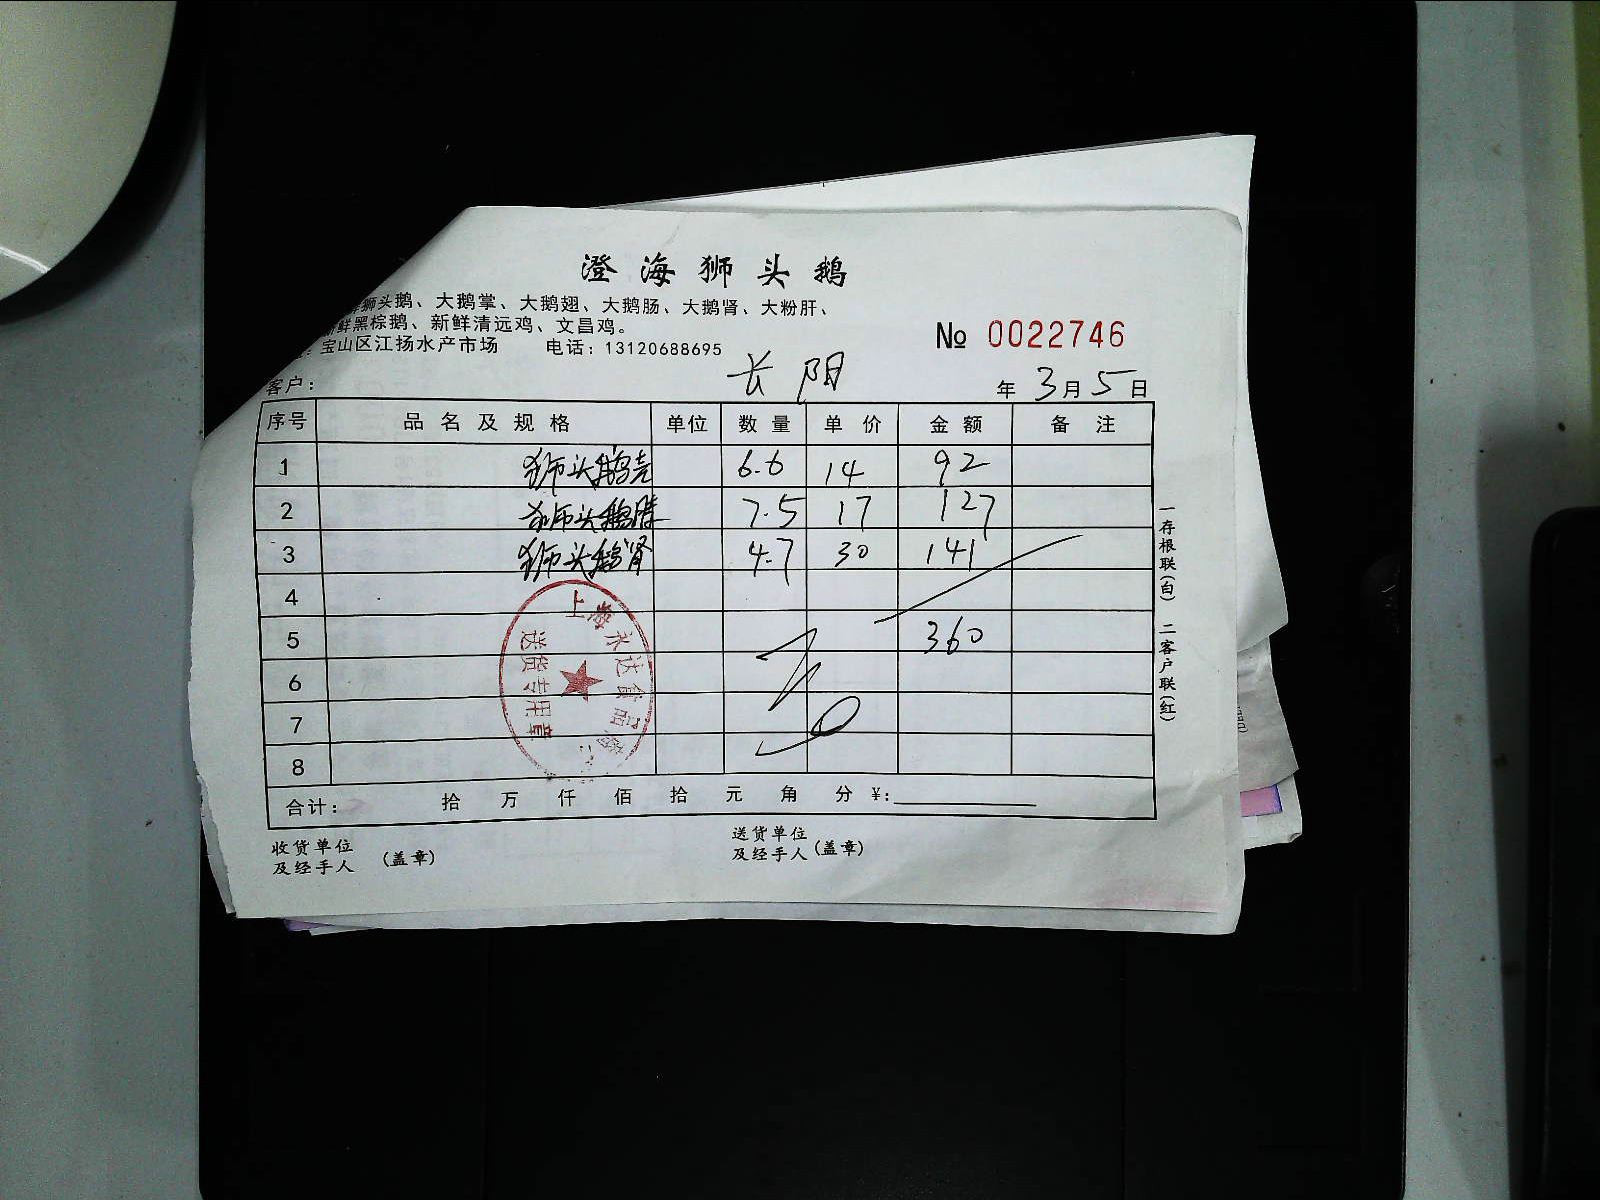 澄海狮头鹅
狮头鹅、大鹅掌、大鹅翅、大鹅肠、大鹅肾、大粉肝、
鲜黑棕鹅、新鲜清远鸡、文昌鸡。
：宝山区江扬水产市场 电话：13120688695
№ 0022746
长阳
客户： 年3月5日
序号 品名及规格 单位 数量 单价 金额 备注
1 狮头鹅壳 6.6 14 92
2 狮头鹅 7.5 17 127
3 狮头鹅肾 4.7 30 141
4
5 360
6
7
8
上海永达食品
送货专用章
合计： 拾 万 仟 佰 拾 元 角 分 ¥:
收货单位
及经手人 (盖章)
送货单位
及经手人(盖章)
一存根联(白) 二客户联(红)